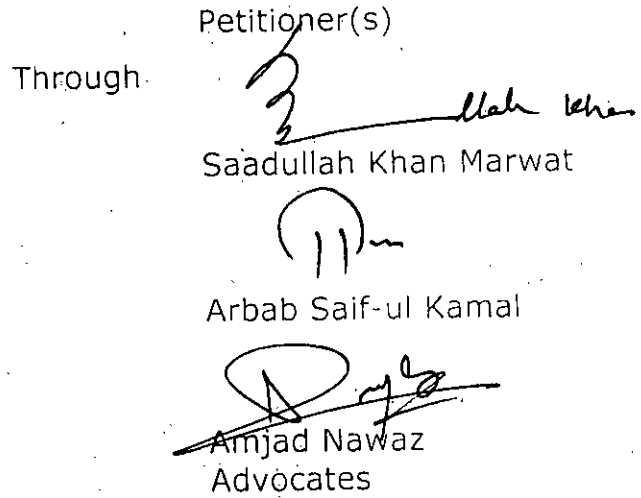 Petitioner(s)
Through
llah Khan
Saadullah Khan Marwat
Arbab Saif-ul Kamal
Amjad Nawaz
Advocates